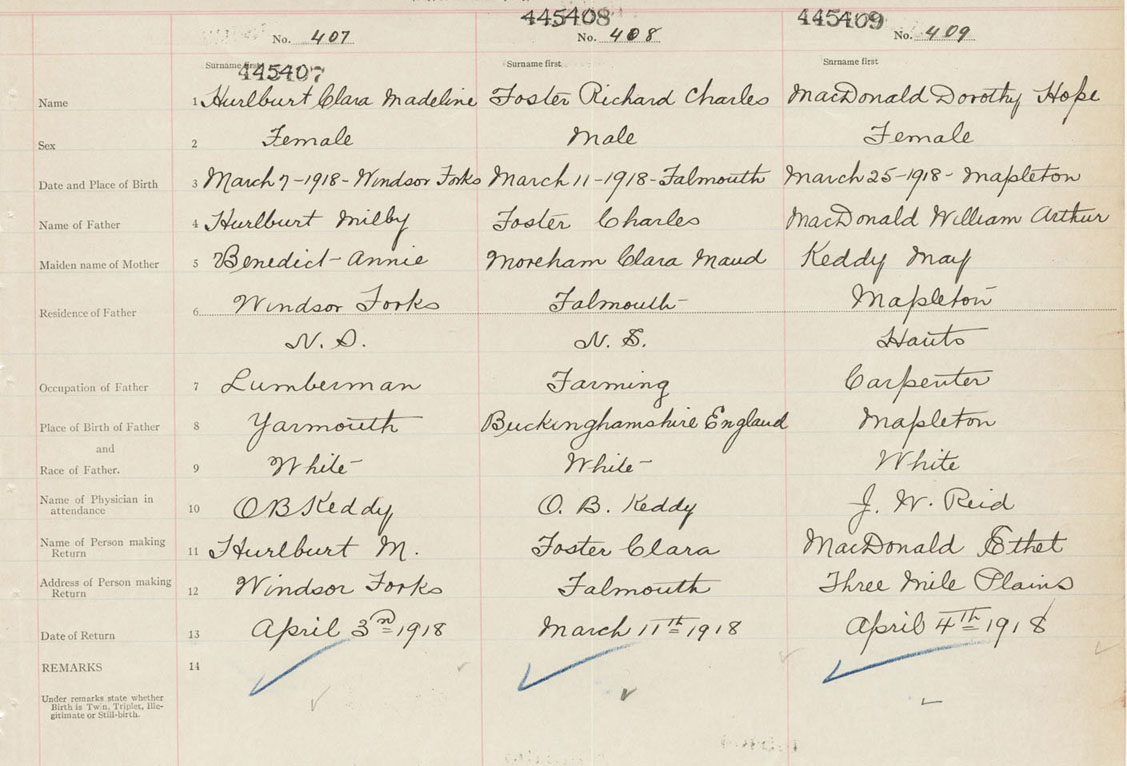 445408 445409
No. 407 No. 408 No. 409
Surname first Surname first Surname first
445407
Name 1 Hurlburt Clara Madeline Foster Richard Charles MacDonald Dorothy Hope
Sex 2 Female Male Female
Date and Place of Birth 3 March 7-1918- Windsor Forks March 11-1918- Falmouth March 25-1918- Mapleton
Name of Father 4 Hurlburt Milby Foster Charles MacDonald William Arthur
Maiden name of Mother 5 Benedict- Annie Moreham Clara Maud Keddy May
Residence of Father 6 Windsor Forks Falmouth Mapleton
N. S. N. S. Hants
Occupation of Father 7 Lumberman Farming Carpenter
Place of Birth of Father 8 Yarmouth Buckinghamshire England Mapleton
and
Race of Father. 9 White White White
Name of Physician in
attendance 10 OB Keddy O. B. Keddy J. W. Reid
Name of Person making
Return 11 Hurlburt M. Foster Clara MacDonald Ethel
Address of Person making
Return 12 Windsor Forks Falmouth Three Mile Plains
Date of Return 13 April 3rd 1918 March 11th 1918 April 4th 1918
REMARKS 14
Under remarks state whether
Birth is Twin, Triplet, Ille-
gitimate or Still-birth.